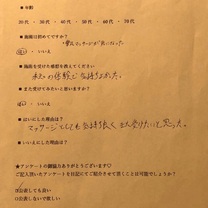 ■年齢
20代・30代・40代・50代・60代・70代
■施術は初めてですか?
はい・いいえ
■施術を受けた感想を教えてください
気持ちよかった。
■また受けてみたいと思いますか?
はい・いいえ
■はいにした理由は?
マッサージとしても気持ち良く、また受けたいと思った。
■いいえにした理由は?
★アンケートの御協力ありがとうございます♡
ご記入頂いたアンケートを日記にてご紹介させて頂くことは可能でしょうか?
○公表しても良い
○公表しないで欲しい